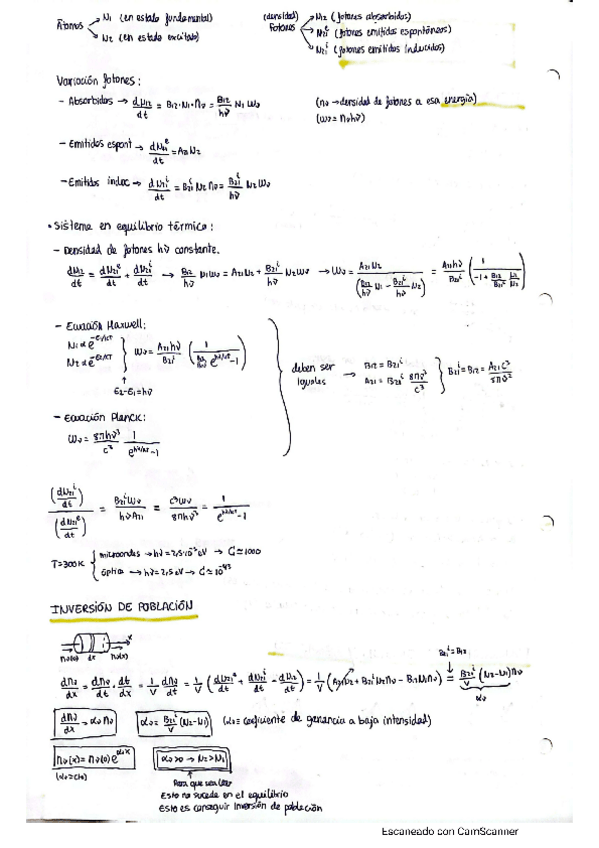 Átomos → N₁ (en estado fundamental)
→ N₂ (en estado excitado)
(densidad) Fotones → N₁₂ (fotones absorbidos)
→ N₂₁ᵉ (fotones emitidos espontáneos)
→ N₂₁ⁱ (fotones emitidos inducidos)
Variación fotones:
- Absorbidos → dN₁₂/dt = B₁₂·N₁·nν = B₁₂/hν N₁ Wν (nν → densidad de fotones a esa energía)
(wν = nν hν)
- Emitidos espont → dN₂₁ᵉ/dt = A₂₁N₂
- Emitidos induc → dN₂₁ⁱ/dt = B₂₁ⁱ N₂ nν = B₂₁ⁱ/hν N₂ Wν
• Sistema en equilibrio térmico:
- Densidad de fotones hν constante.
dN₁₂/dt = dN₂₁ᵉ/dt + dN₂₁ⁱ/dt → B₁₂/hν N₁Wν = A₂₁N₂ + B₂₁ⁱ/hν N₂Wν → Wν = A₂₁N₂/(B₁₂/hν N₁ - B₂₁ⁱ/hν N₂) = A₂₁hν/B₂₁ⁱ (1/(-1 + B₁₂/B₂₁ⁱ N₁/N₂))
- Ecuación Maxwell:
N₁ ∝ e^(-E₁/kT)
N₂ ∝ e^(-E₂/kT) } Wν = A₂₁hν/B₂₁ⁱ (1/(B₁₂/B₂₁ⁱ e^(hν/kT) -1))
E₂-E₁=hν
deben ser iguales → B₁₂ = B₂₁ⁱ
A₂₁ = B₂₁ⁱ 8πν²/c³ } B₂₁ⁱ = B₁₂ = A₂₁c³/8πν²
- Ecuación Planck:
Wν = 8πhν³/c³ 1/(e^(hν/kT) -1)
(dN₂₁ⁱ/dt)/(dN₂₁ᵉ/dt) = B₂₁ⁱWν/hνA₂₁ = c³Wν/8πhν³ = 1/(e^(hν/kT) -1)
T=300K { microondas → hν = 2,5·10⁻⁵ eV → G ≃ 1000
óptica → hν = 2,5 eV → G ≃ 10⁻⁴³
INVERSIÓN DE POBLACIÓN
x
nν(0) dx nν(x)
B₂₁ⁱ = B₁₂
dnν/dx = dnν/dt · dt/dx = 1/V dnν/dt = 1/V (dN₂₁ᵉ/dt + dN₂₁ⁱ/dt - dN₁₂/dt) = 1/V (A₂₁N₂ + B₂₁ⁱN₂nν - B₁₂N₁nν) = B₂₁ⁱ/V (N₂-N₁)nν
αν
dnν/dx = αν nν αν = B₂₁ⁱ/V (N₂-N₁) (αν = coeficiente de ganancia a baja intensidad)
nν(x) = nν(0) e^(ανx) αν>0 → N₂>N₁
(αν=cte)
Para que sea láser
Esto no sucede en el equilibrio
Esto es conseguir inversión de población
Escaneado con CamScanner